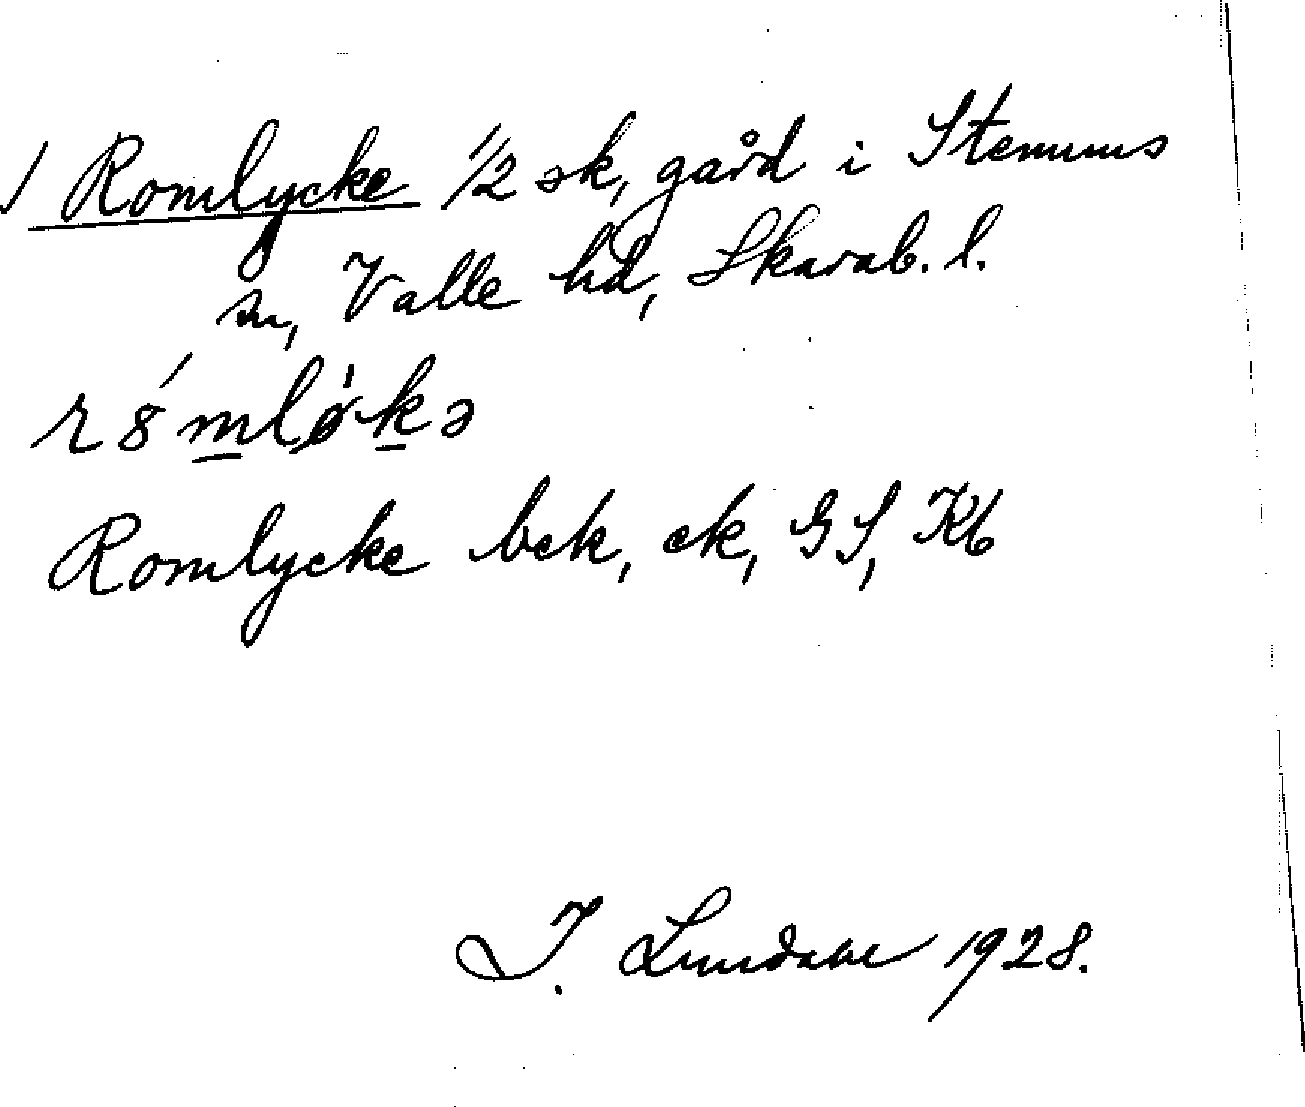 / Romlycke 1/2 sk, gård i Stenums
sn, Valle hd, Skarab. l.
r8́mlø̀kə
Romlycke bek, ek, GS, Kb
I. Lundahl 1928.